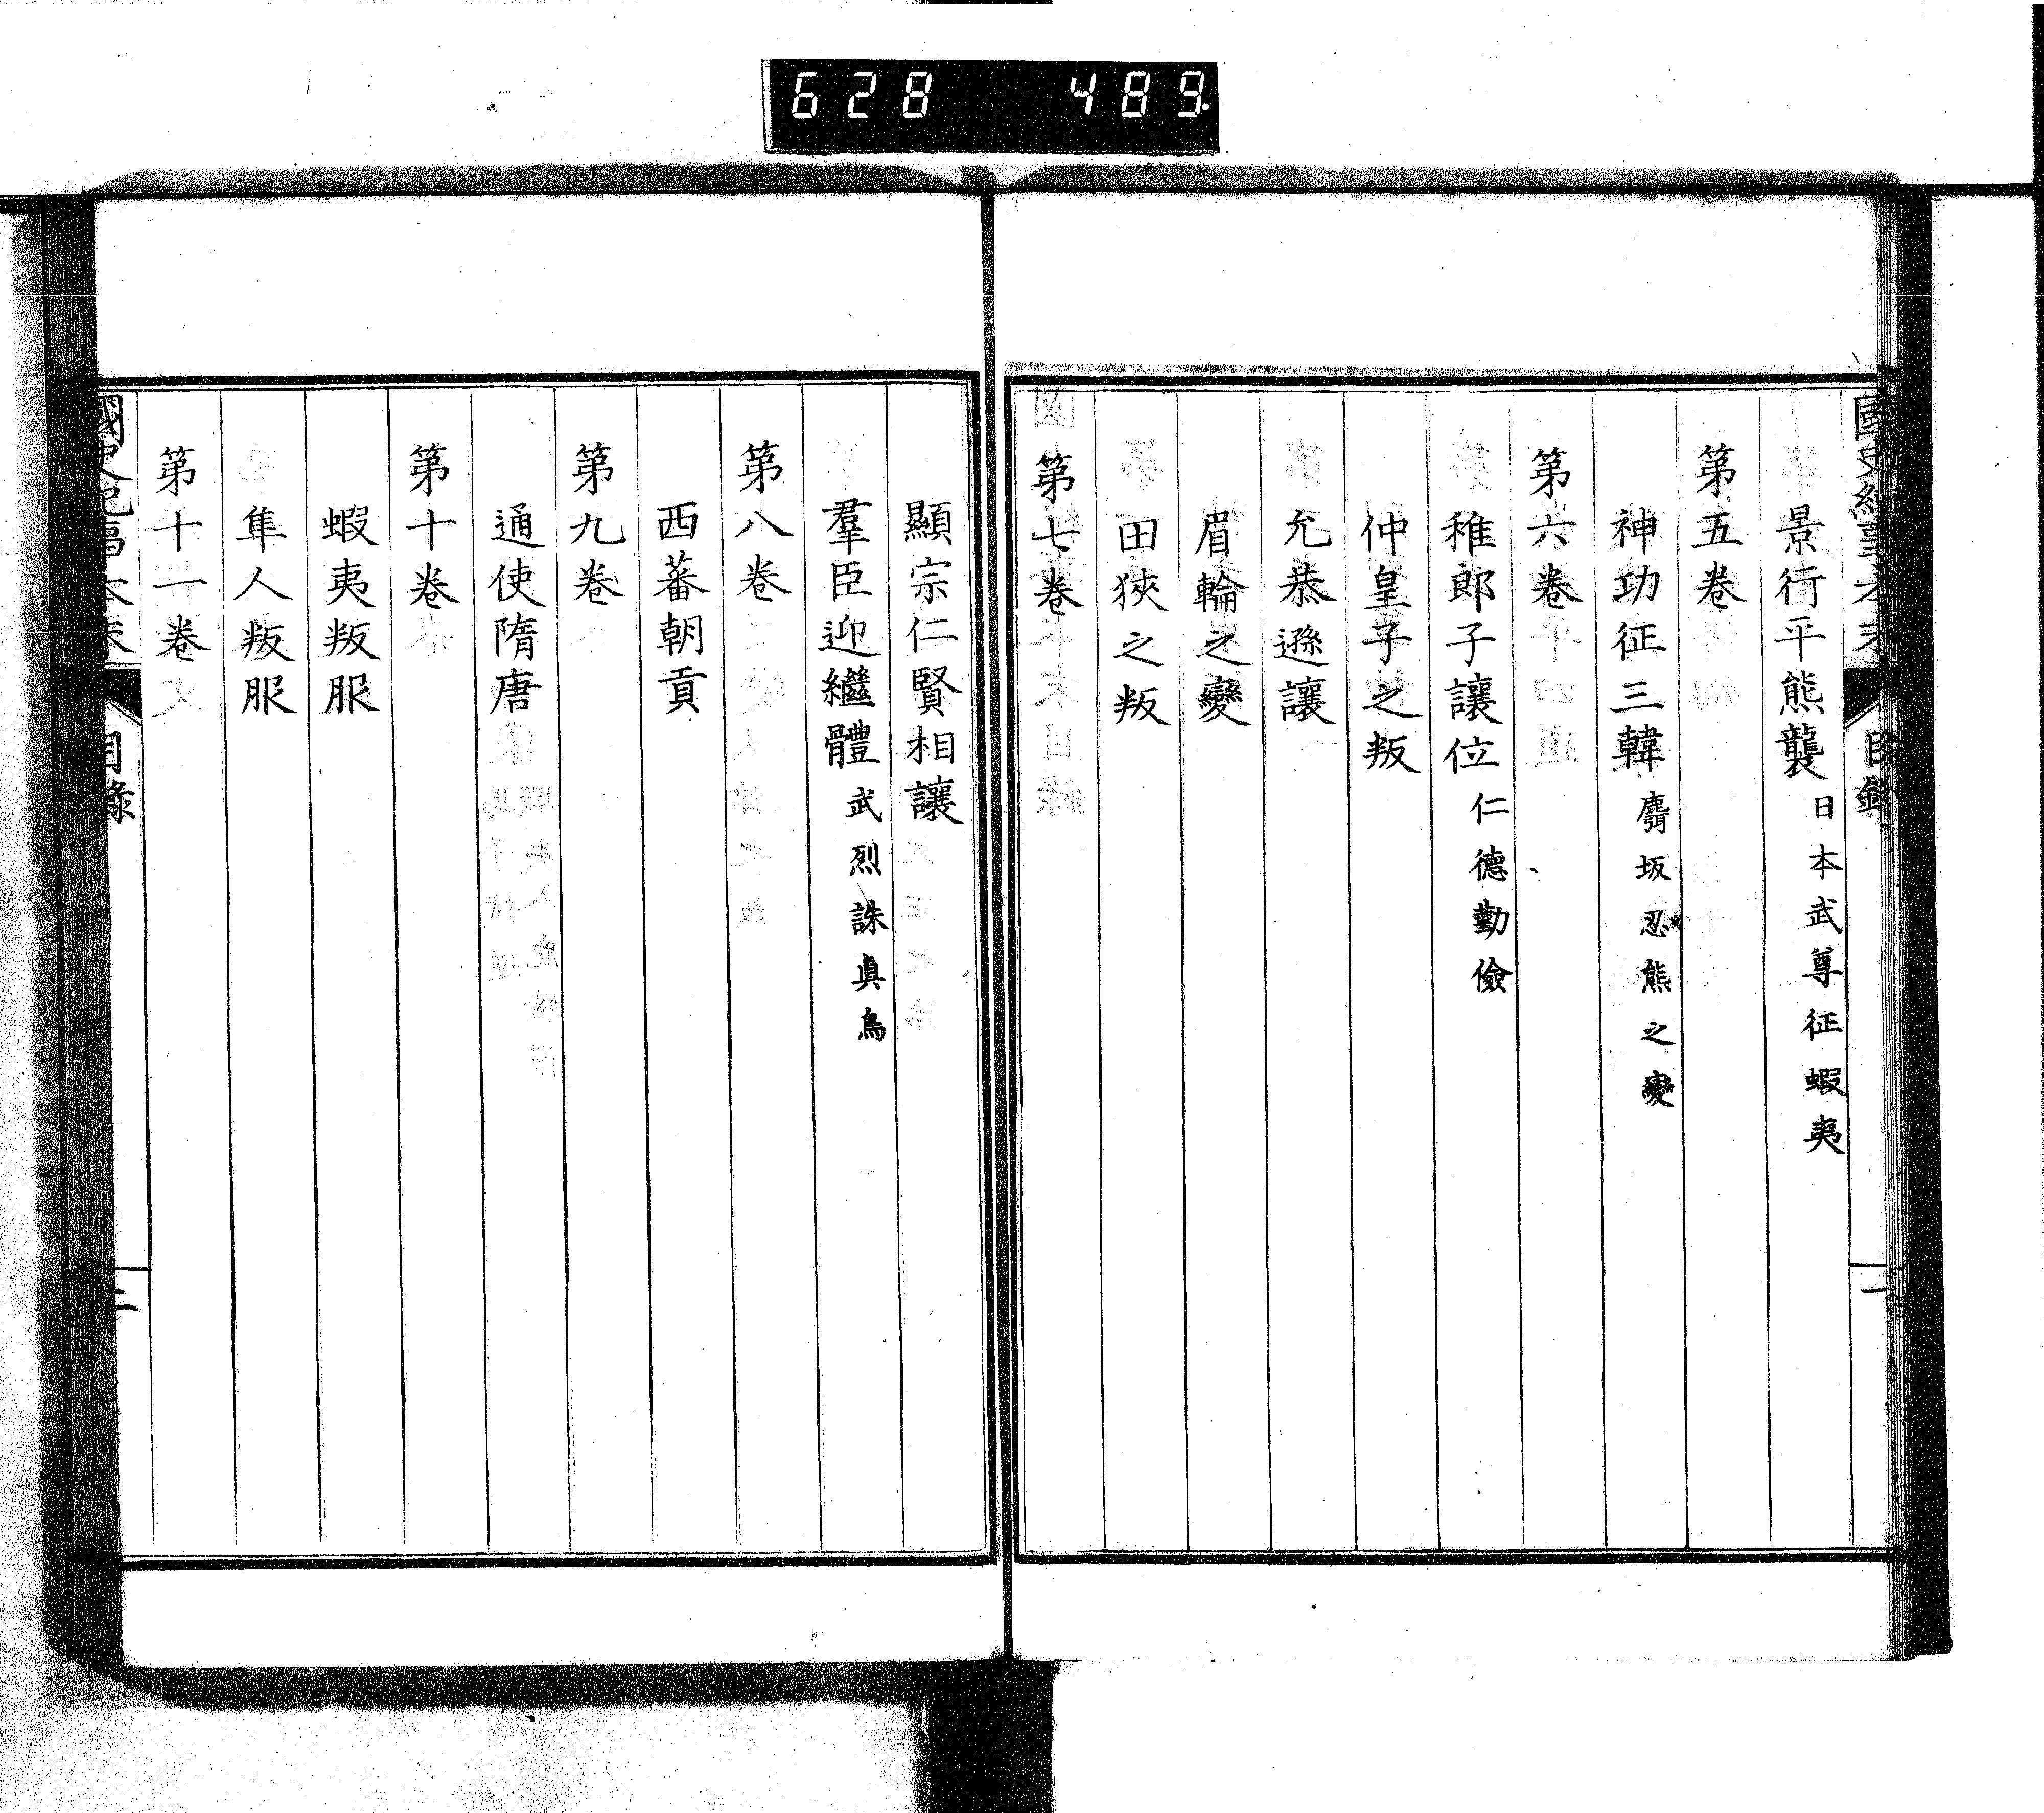 628 489.
國史紀事本末 目錄 一
景行平熊襲 日本武尊征蝦夷
第五卷
神功征三韓 麛坂忍熊之變
第六卷
稚郎子讓位 仁德勤儉
仲皇子之叛
允恭遜讓
眉輪之變
田狹之叛
第七卷
顯宗仁賢相讓
羣臣迎繼體 武烈誅眞鳥
第八卷
西蕃朝貢
第九卷
通使隋唐
第十卷
蝦夷叛服
隼人叛服
第十一卷
國史紀事本末 目錄 二